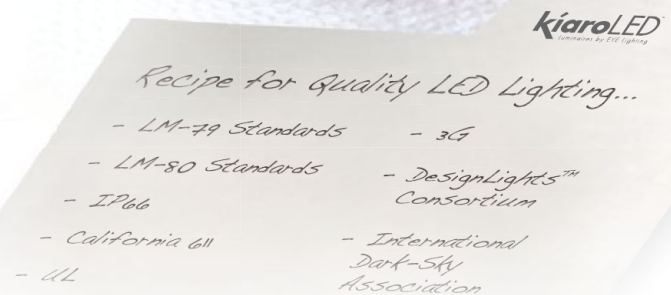 kíaroLED
luminaires by EYE lighting
Recipe for Quality LED Lighting...
- LM-79 Standards
- LM-80 Standards
- IP66
- California 611
- UL
- 3G
- DesignLights™
Consortium
- International
Dark-Sky
Association